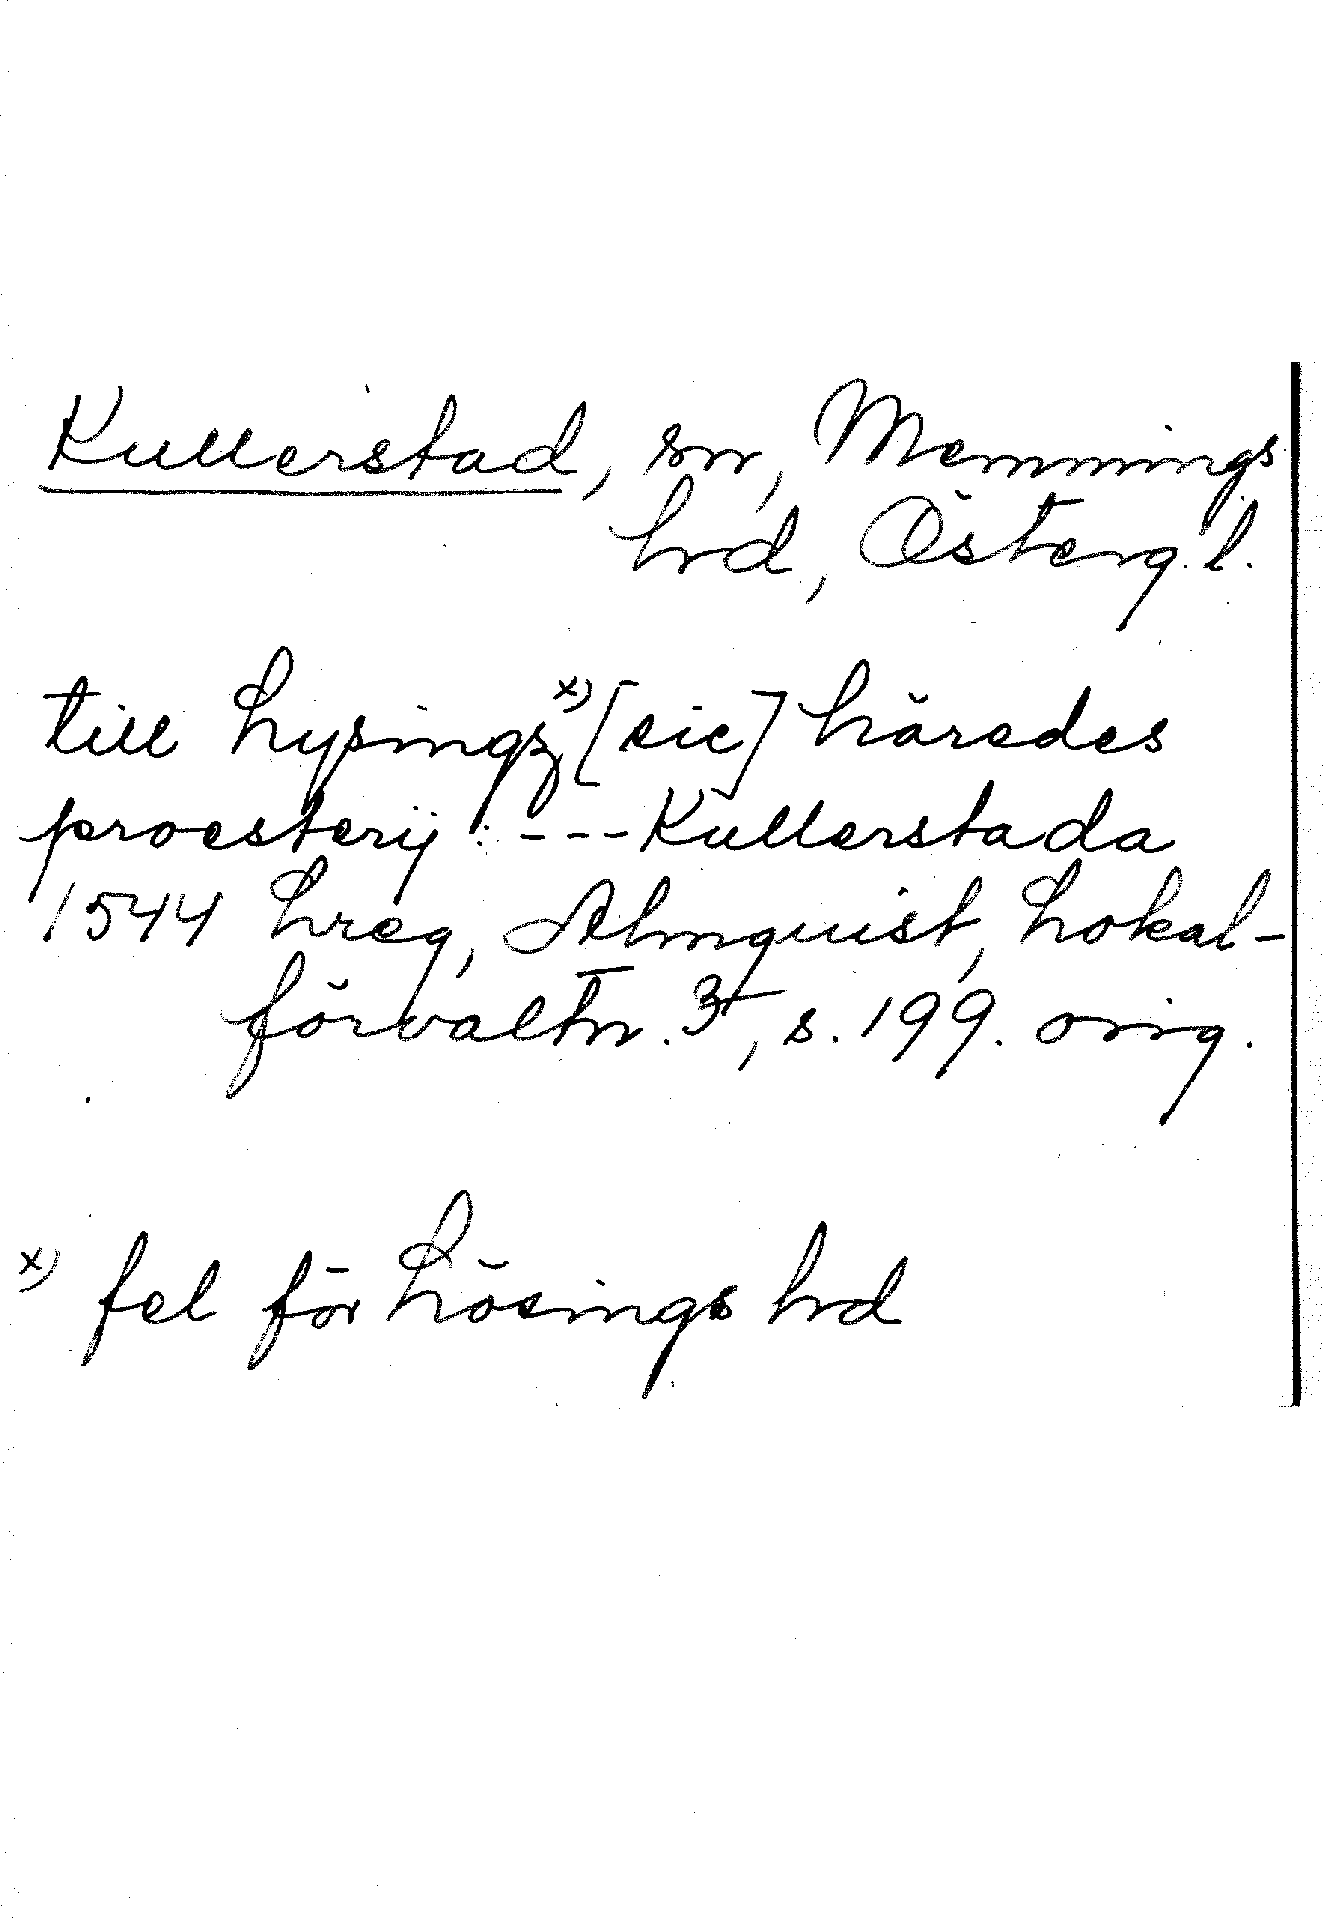 Kullerstad, sn, Memmings
hrd, Österg. l.
till Lysingz x) [sic] häredes
proesterij : --- Kullerstada
1544 Lreg, Almquist, Lokal-
förvaltn. 3, s. 199. orig.
x) fel för Lösings hrd